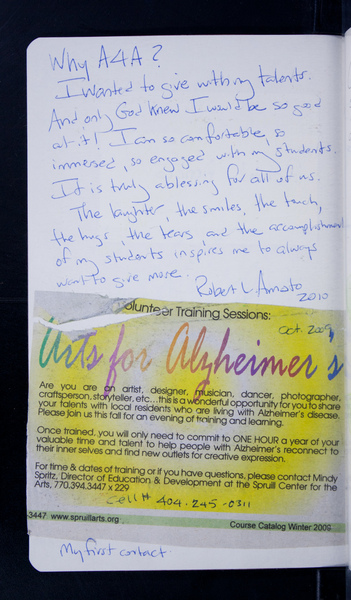 Why A4A?
I wanted to give with my talents.
And only God knew I would be so good
at it! I am so comfortable, so
immersed, so engaged with my students.
It is truly a blessing for all of us.
The laughter, the smiles, the touch,
the hugs, the tears and the accomplishment
of my students inspires me to always
want to give more.
Robert L. Amato
2010
olunteer Training Sessions:
Oct. 2009,
Arts for Alzheimer's
Are you are an artist, designer, musician, dancer, photographer,
craftsperson, storyteller, etc...this is a wonderful opportunity for you to share
your talents with local residents who are living with Alzheimer's disease.
Please join us this fall for an evening of training and learning.
Once trained, you will only need to commit to ONE HOUR a year of your
valuable time and talent to help people with Alzheimer's reconnect to
their inner selves and find new outlets for creative expression.
For time & dates of training or if you have questions, please contact Mindy
Spritz, Director of Education & Development at the Spruill Center for the
Arts, 770.394.3447 x 229
Cell # 404-245-0311
.3447 www.spruillarts.org
Course Catalog Winter 2009
My first contact